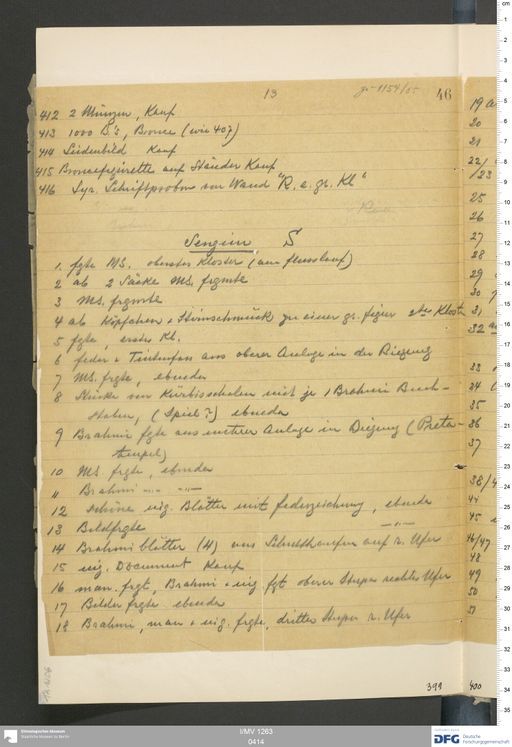 13 46
412 2 Münzen, Kauf
413 1000 B.'s, Bronce (wie 407)
414 Seidenbild Kauf
415 Broncefigürette auf Ständer Kauf
416 Syr. Schriftproben von Wand "R. a. gr. Kl"
Sengim S
1. fgte MS. oberstes Kloster (am Flusslauf)
2 ab 2 Säcke MS. frgmte
3 MS. frgmte
4 ab Köpfchen + Stirnschmuck zu einer gr. figur Kloster
5 fgte, erstes Kl.
6 feder + Tintenfass aus oberer Anlage in der Biegung
7 MS. frgte, ebenda
8 Stücke von Kürbisschalen mit je 1 Brahmi Buch-
staben, (Spiel?) ebenda
9 Brahmi fgte aus unterer Anlage in Biegung (Preta-
tempel)
10 MS frgte, ebenda
11 Brahmi
12 schöne uig. Blätter mit federzeichnung, ebenda
13 Bildfrgte
14 Brahmi blätter (4) aus Schutthaufen auf r. Ufer
15 uig. Document Kauf
16 man. frgt, Brahmi + uig fgt oberer Stupa rechtes Ufer
17 Bilder frgte ebenda
18 Brahmi, man + uig. frgte, dritter Stupa r. Ufer
399
19
20
21
22/
/23
25
26
27
28
29
30
31
32
33
34
35
36
37
38/4
44
45
46/47
48
49
50
51
400
Ethnologisches Museum
Staatliche Museen zu Berlin
I/MV 1263
0414
DFG Deutsche
Forschungsgemeinschaft